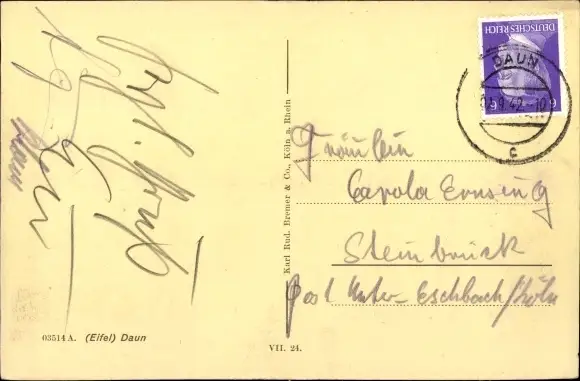 DEUTSCHES REICH
6 6
DAUN
.9.42.-10
c
Fräulein
Carola Ernsing
Steinbrück
Post Unter-Eschbach/Köln
Karl Rud. Bremer & Co., Köln a. Rhein
03514 A. (Eifel) Daun
VII. 24.